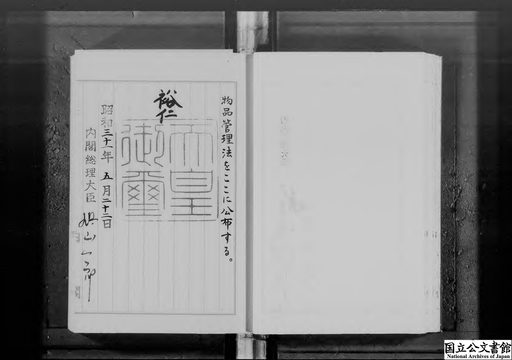 物品管理法をここに公布する。
裕仁
天皇
御璽
昭和三十一年五月二十二日
内閣総理大臣 鳩山一郎
国立公文書館
National Archives of Japan